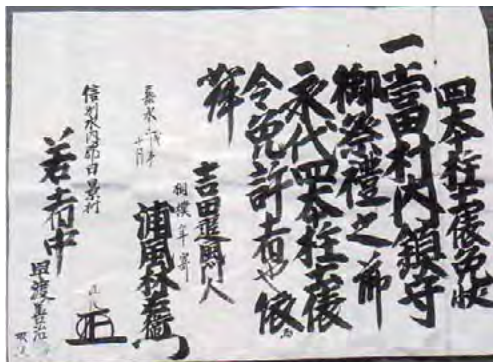 四本柱土俵免状
一當村内鎮守
御祭禮之節
永代四本柱土俵
令免許者也依而
吉田追風門人
相撲年寄
浦風林右衛門
嘉永
十月
信州水内郡日影村
若者中